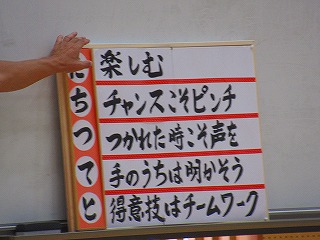 た 楽しむ
ち チャンスこそピンチ
つ つかれた時こそ声を
て 手のうちは明かそう
と 得意技はチームワーク